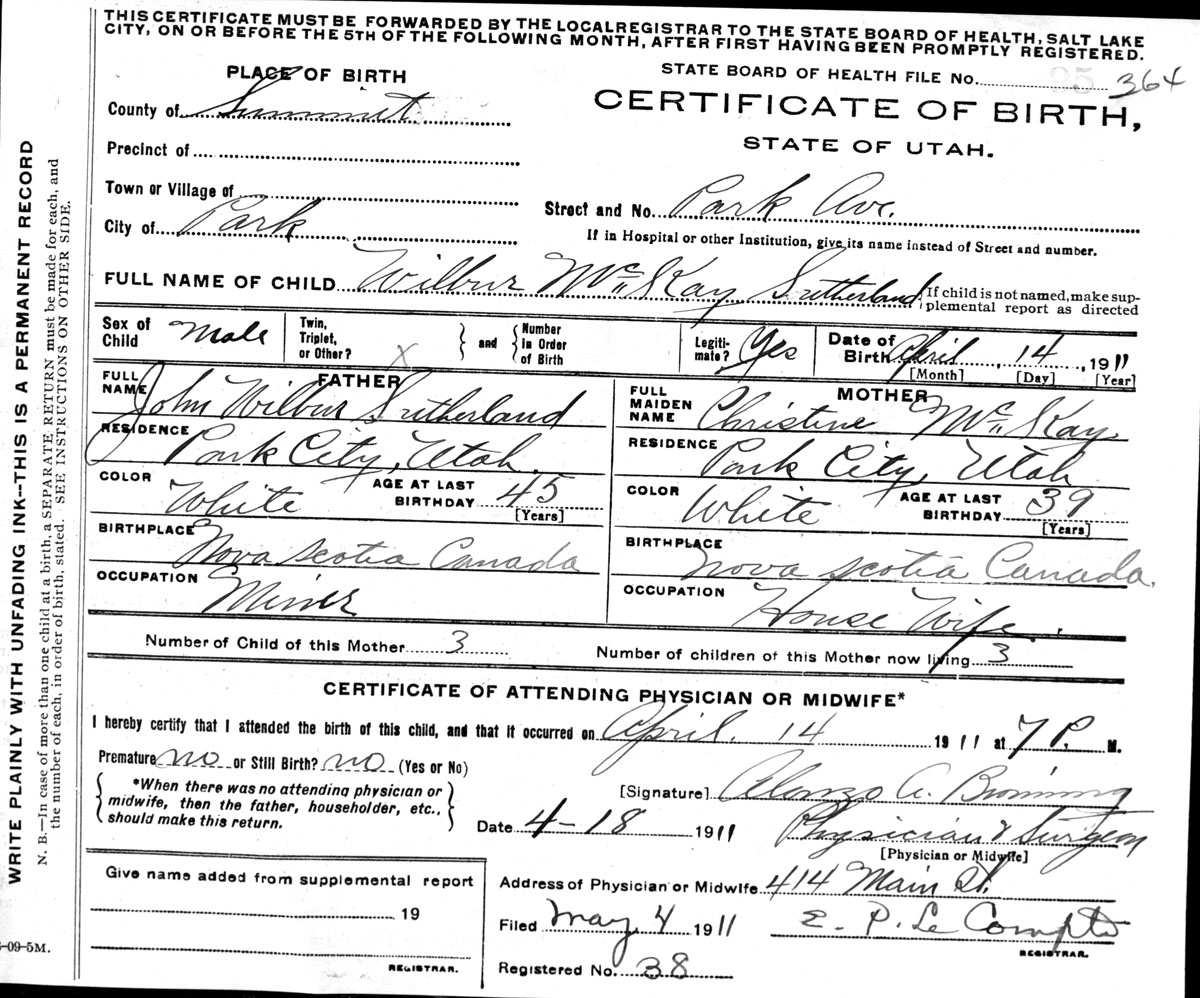 THIS CERTIFICATE MUST BE FORWARDED BY THE LOCAL REGISTRAR TO THE STATE BOARD OF HEALTH, SALT LAKE
CITY, ON OR BEFORE THE 5TH OF THE FOLLOWING MONTH, AFTER FIRST HAVING BEEN PROMPTLY REGISTERED.
PLACE OF BIRTH
STATE BOARD OF HEALTH FILE No. 95 364
County of Summit
CERTIFICATE OF BIRTH,
STATE OF UTAH.
Precinct of
Town or Village of
City of Park
Street and No. Park Ave.
If in Hospital or other Institution, give its name instead of Street and number.
FULL NAME OF CHILD Wilbur McKay Sutherland
If child is not named, make sup-
plemental report as directed
Sex of Child Male
Twin, Triplet, or Other? X
and
Number in Order of Birth
Legiti-mate? Yes
Date of Birth April 14, 1911
[Month] [Day] [Year]
FATHER
FULL NAME John Wilbur Sutherland
RESIDENCE Park City, Utah.
COLOR White AGE AT LAST BIRTHDAY 45
[Years]
BIRTHPLACE Nova Scotia Canada
OCCUPATION Miner
MOTHER
FULL MAIDEN NAME Christine McKay.
RESIDENCE Park City, Utah
COLOR White AGE AT LAST BIRTHDAY 39
[Years]
BIRTHPLACE Nova Scotia Canada.
OCCUPATION House Wife.
Number of Child of this Mother 3
Number of children of this Mother now living 3
CERTIFICATE OF ATTENDING PHYSICIAN OR MIDWIFE*
I hereby certify that I attended the birth of this child, and that it occurred on April. 14 1911 at 7 P. M.
Premature no or Still Birth? no (Yes or No)
*When there was no attending physician or
midwife, then the father, householder, etc.,
should make this return.
[Signature] Alonzo A.
Date 4-18 1911
Physician & Surgeon
[Physician or Midwife]
Give name added from supplemental report
19
REGISTRAR.
Address of Physician or Midwife 414 Main St.
Filed May 4 1911
E. P. Le Compte
REGISTRAR.
Registered No. 38
WRITE PLAINLY WITH UNFADING INK--THIS IS A PERMANENT RECORD
N. B.—In case of more than one child at a birth, a SEPARATE RETURN must be made for each, and
the number of each, in order of birth, stated. SEE INSTRUCTIONS ON OTHER SIDE.
-09-5M.